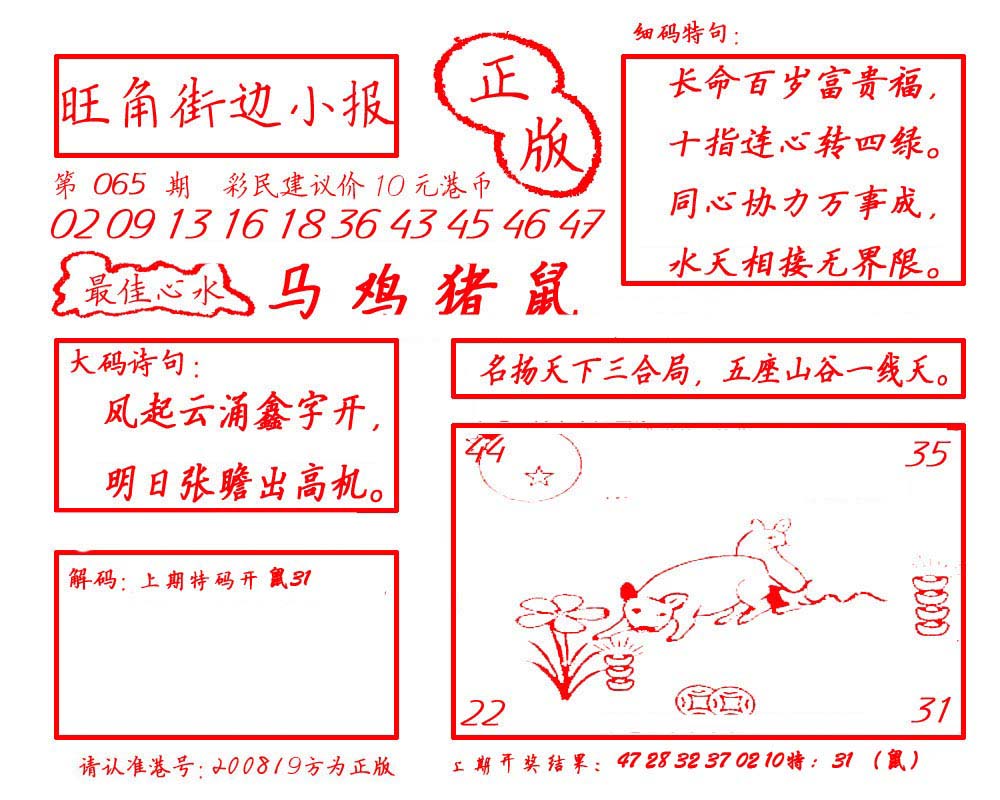 细码特句：
旺角街边小报
正版
长命百岁富贵福，
十指连心转四绿。
同心协力万事成，
水天相接无界限。
第 065 期 彩民建议价 10 元港币
02 09 13 16 18 36 43 45 46 47
最佳心水 马 鸡 猪 鼠
大码诗句：
风起云涌鑫字开，
明日张瞻出高机。
名扬天下三合局，五座山谷一线天。
44 35
22 31
解码：上期特码开 鼠31
请认准港号：200819方为正版
上期开奖结果：47 28 32 37 02 10特：31 （鼠）